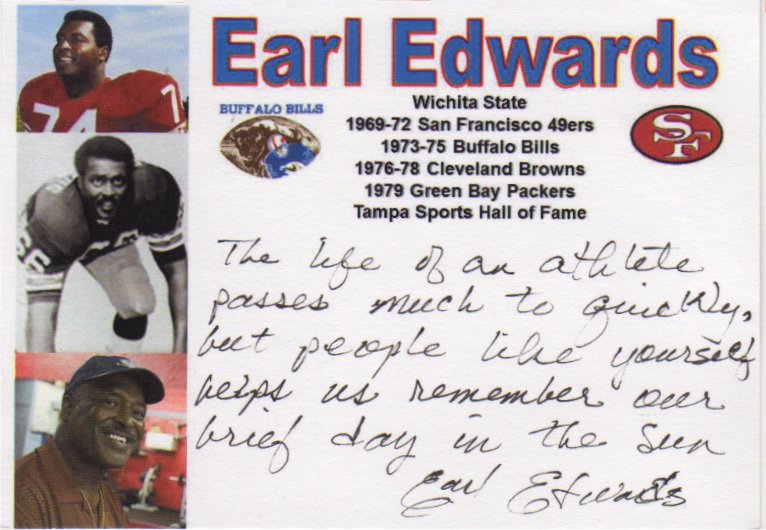 Earl Edwards
Wichita State
1969-72 San Francisco 49ers
1973-75 Buffalo Bills
1976-78 Cleveland Browns
1979 Green Bay Packers
Tampa Sports Hall of Fame
BUFFALO BILLS
SF
74
7
66
The life of an athlete
passes much to quickly,
but people like yourself
helps us remember our
brief day in the sun
Earl Edwards